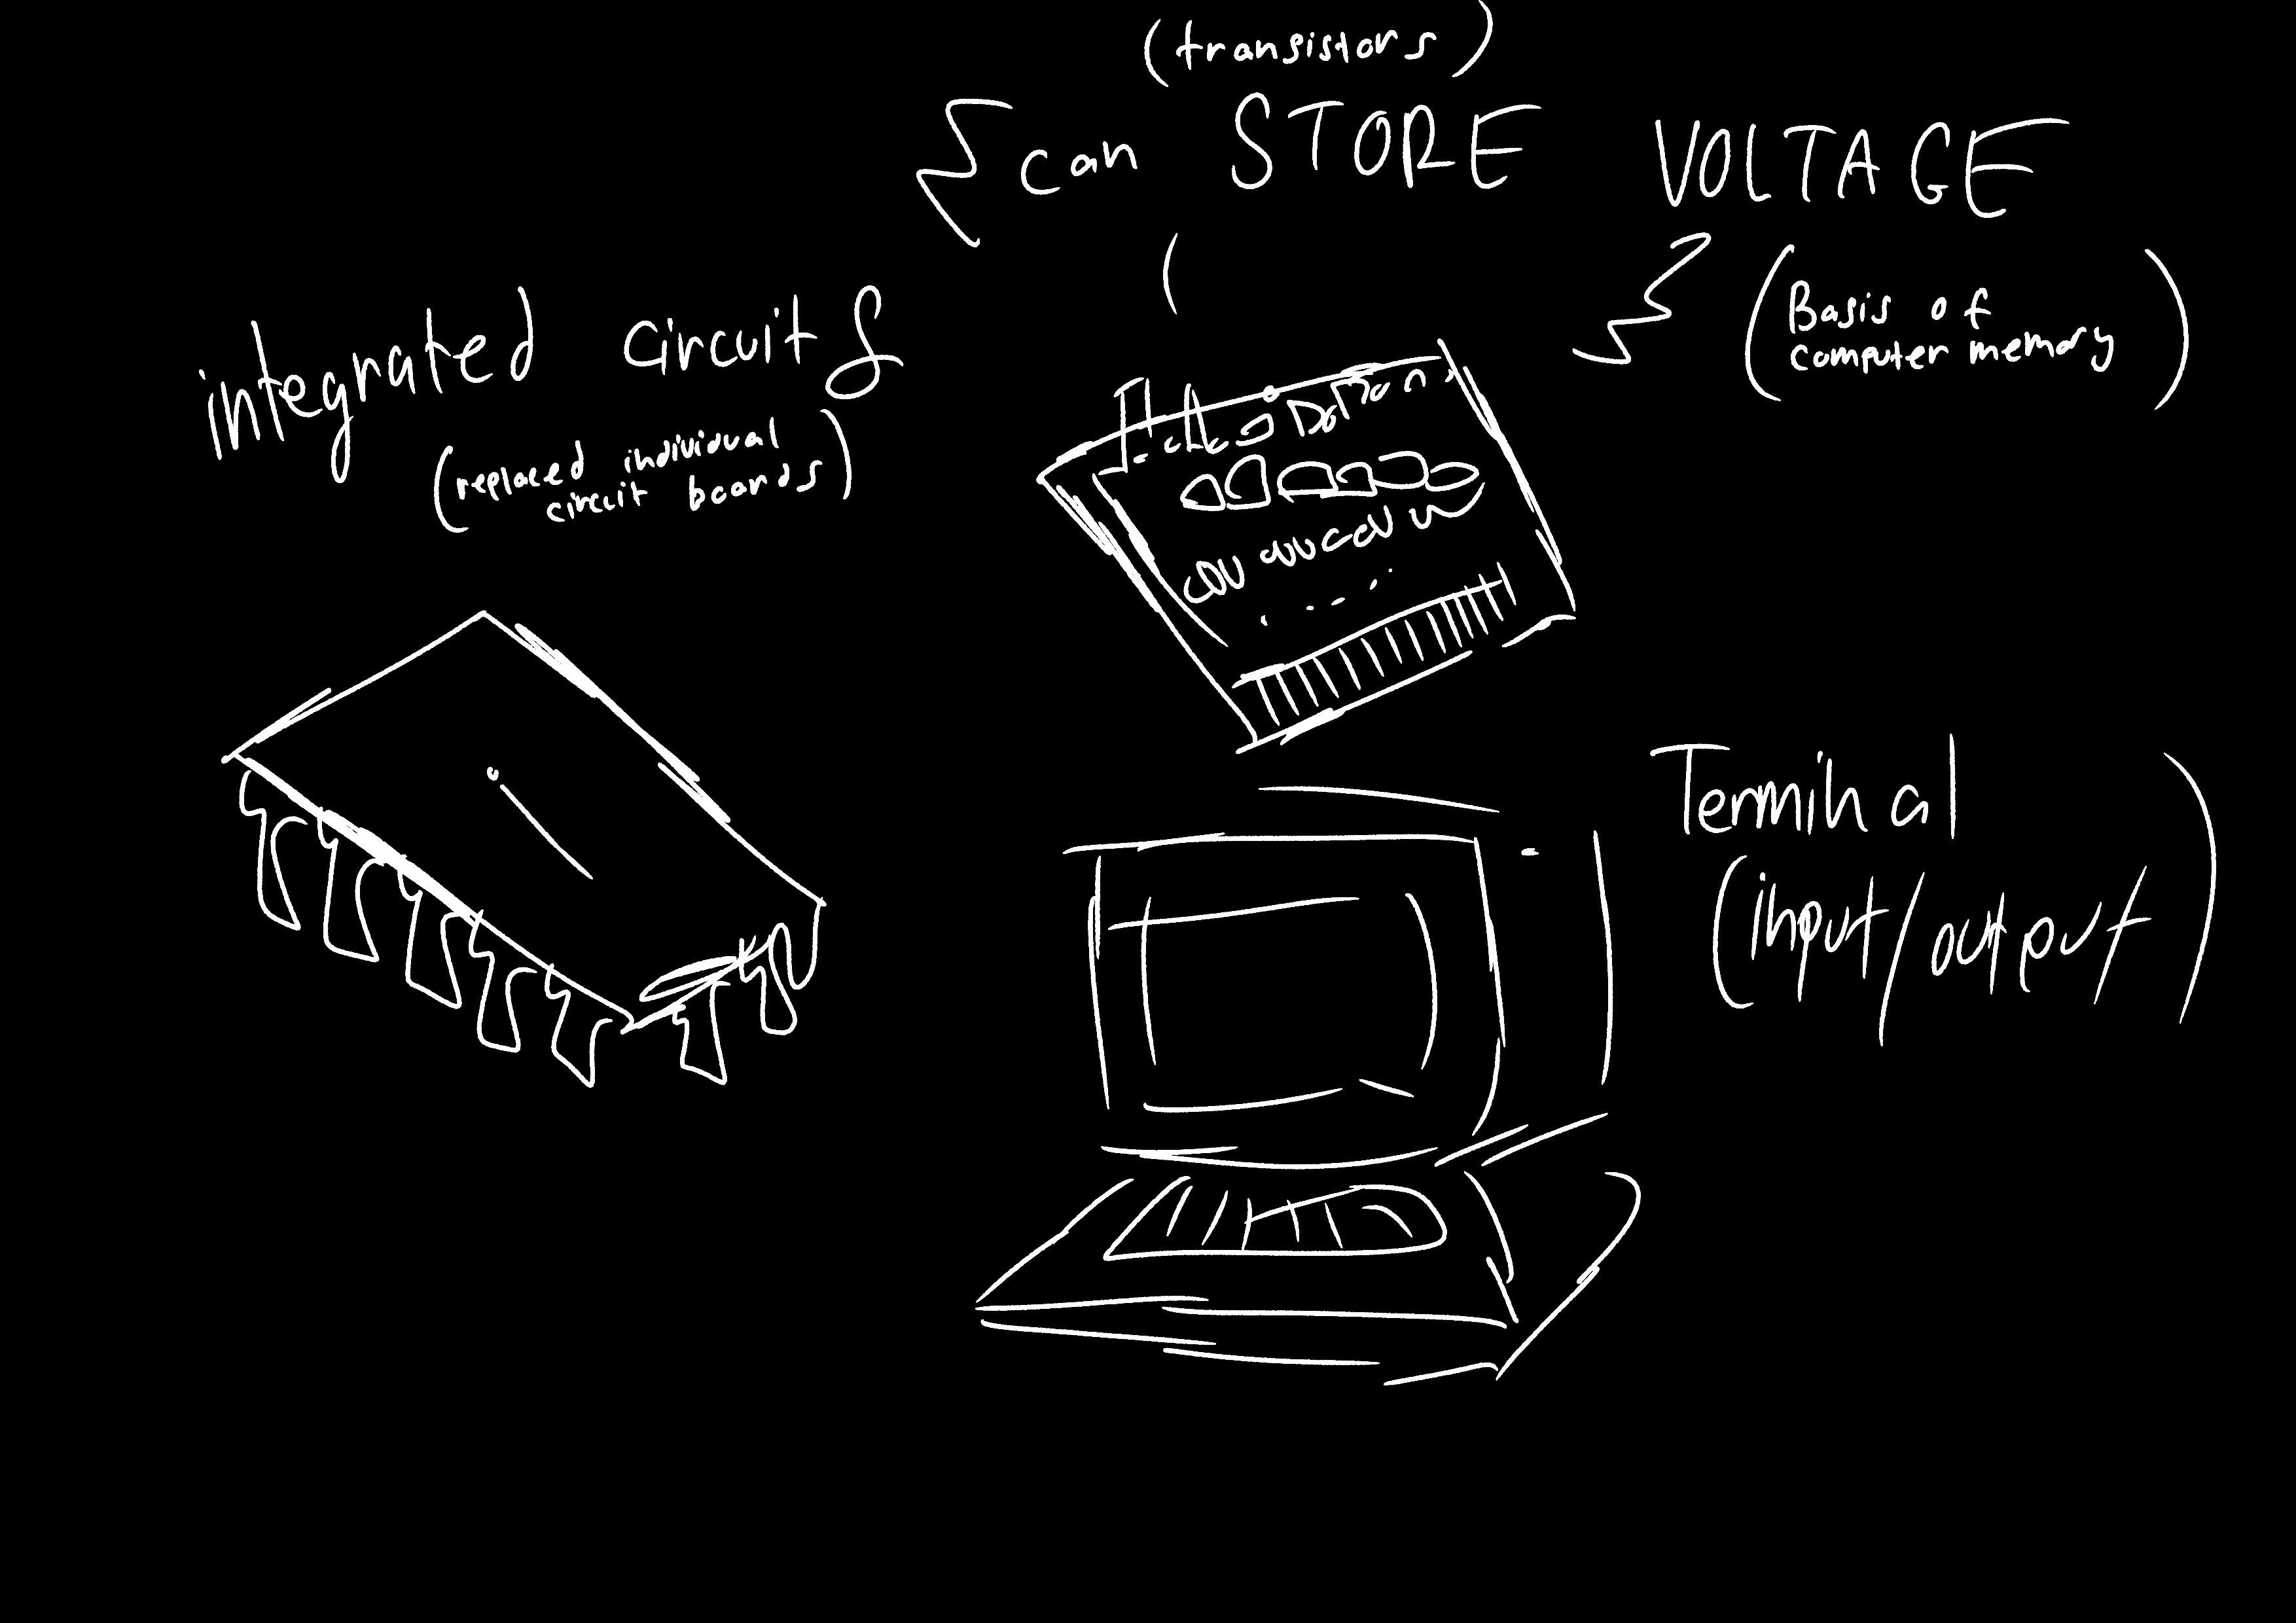 (transistors)
{can STORE VOLTAGE
(Basis of
computer memory)
integrated circuits
(replaced individual
circuit boards)
Terminal
(input/output)